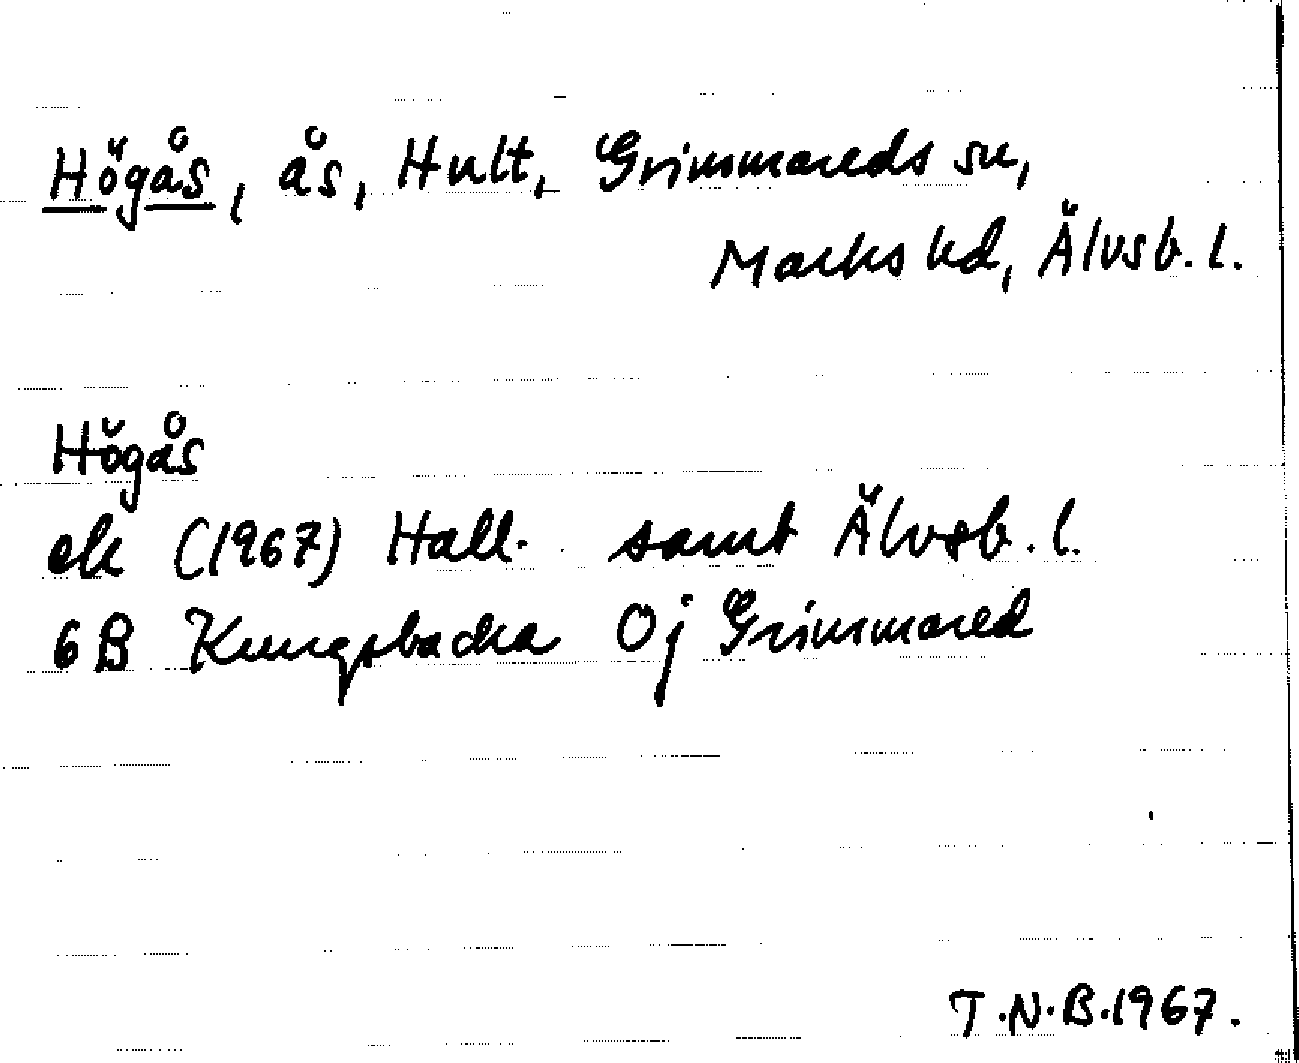 Högås, ås, Hult, Grimmareds sn,
Marks hd, Älvsb. l.
Högås
ek (1967) Hall. samt Älvsb. l.
6B Kungsbacka 0j Grimmared
T.N.B.1967.